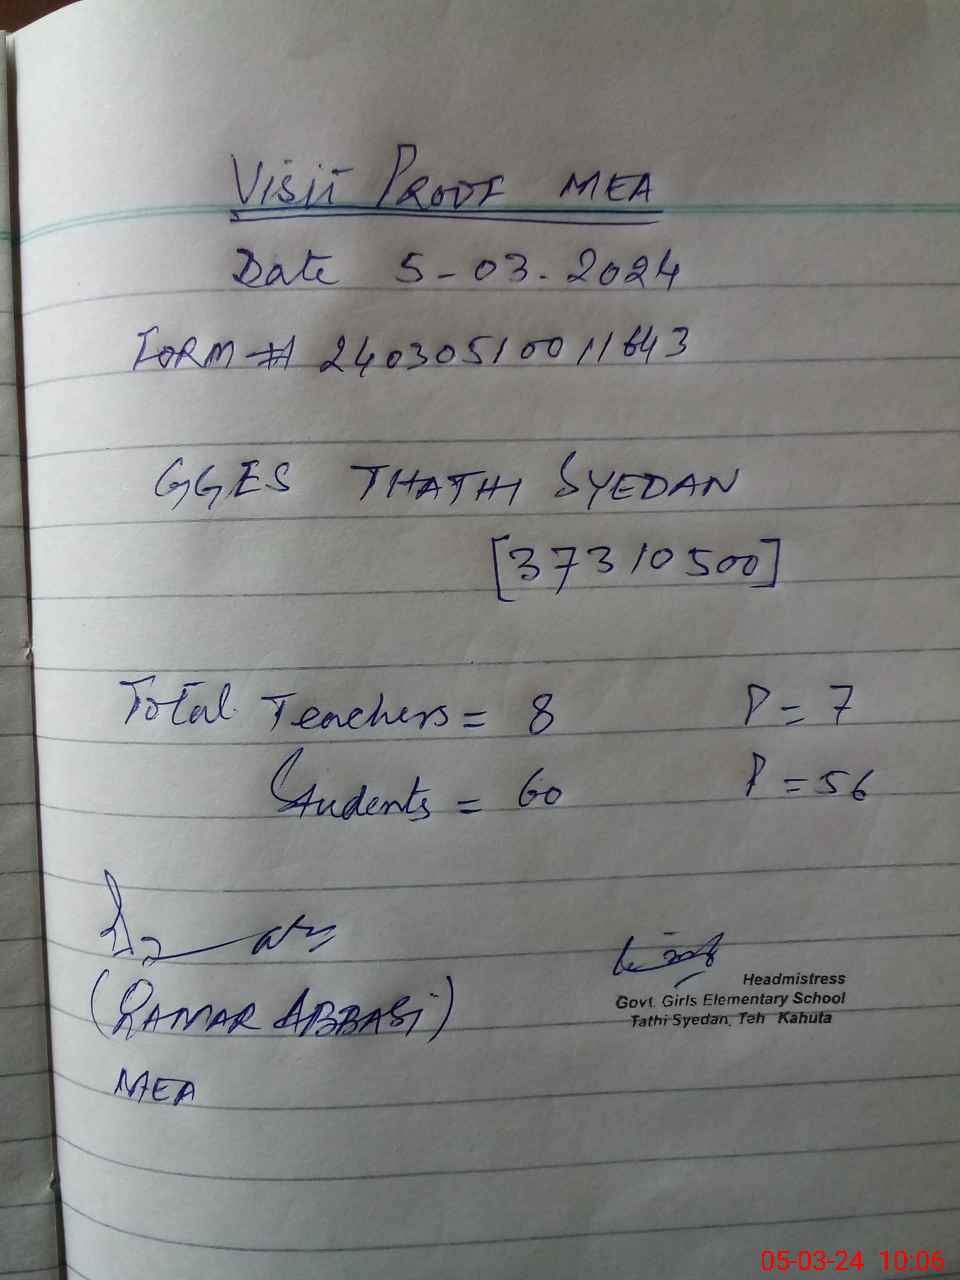 Visit Proof MEA
Date 5-03-2024
Form # 24030510011643
GGES THATHI SYEDAN
[37310500]
Total Teachers = 8 P = 7
Students = 60 P = 56
(QAMAR ABBASI)
MEA
Headmistress
Govt. Girls Elementary School
Tathi Syedan, Teh Kahuta
05-03-24 10:06